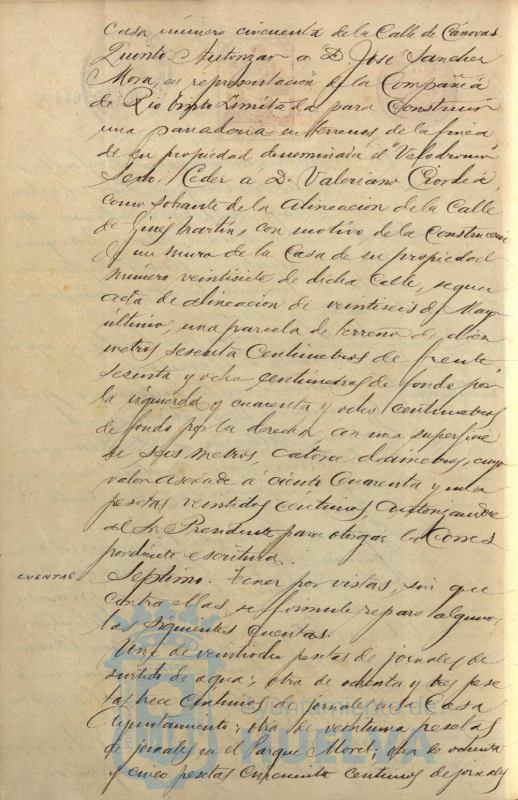 Casa número cincuenta de la Calle de Cánovas
Quinto. Autorizar a D. José Sanchez
Mora, en representación de la Compañia
de Rio Tinto Limitada para Construir
una panaderia en terrenos de la finca
de su propiedad denominada el "Velodromo"
Sexto. Ceder á D. Valeriano
como sobrante de la alineación de la Calle
de Ginés Martín, con motivo de la Construcción
de un muro de la Casa de su propiedad
número veintisiete de dicha Calle, segun
acta de alineación de veintiseis de Mayo
último, una parcela de terreno de
metros sesenta Centímetros de frente
sesenta y ocho centímetros de fondo por
la izquierda y cuarenta y ocho centímetros
de fondo por la derecha, con una superficie
de seis metros, catorce decímetros, cuyo
valor asciende á ciento Cuarenta y una
pesetas veintidos céntimos autorizandose
al Sr. Presidente para otorgar la Corres
pondiente escritura.
CUENTAS
Septimo. Tener por vistas, sin que
contra ellas, se formule reparo alguno
las siguientes cuentas.
Una de veintiocho pesetas de jornales de
surtido de agua; otra de ochenta y tres pese
tas trece Centimos de jornales en la Casa
Ayuntamiento; otra de veintiuna pesetas
de jornales en el Parque Moret; otra de ochenta
y cinco pesetas cincuenta centimos de jornales
Ayuntamiento de
HUELVA